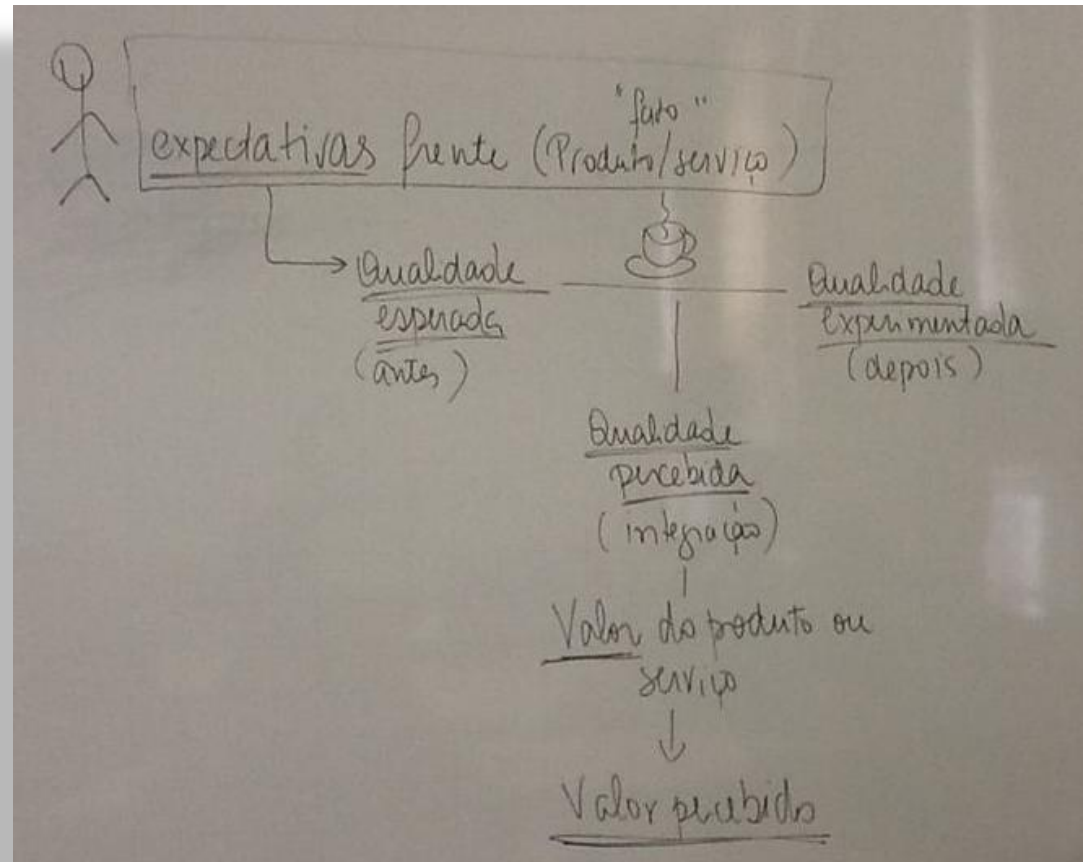 "fato"
expectativas frente (Produto/serviço)
Qualidade
esperada
(antes)
Qualidade
experimentada
(depois)
Qualidade
percebida
(integração)
Valor do produto ou
serviço
Valor percebido